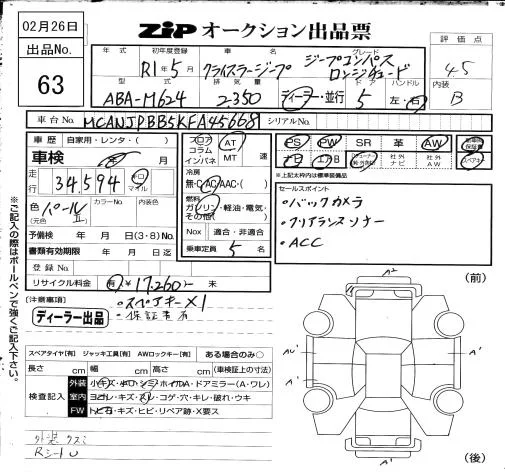 02月26日
ZIP オークション出品票
出品No.
63
年式 初年度登録 車名 グレード 評価点
R1年5月 クライスラージープ ジープコンパス ロンジチュード 4.5
型式 排気量 ドア ハンドル 内装
ABA-M624 2350 ディーラー・並行 5 左・右 B
車台No. MCANJPBB5KFA45668 シリアルNo.
車歴 自家用・レンタ・( )
フロア コラム インパネ AT MT 速
PS PW SR 革 AW
ナビ エアB 社外ナビ 社外AW スペアキー
※上記太枠内は標準装備品
車検 年 月
走行 34,594 キロ マイル
冷房 無・C・AC・AAC・( )
燃料 ガソリン・軽油・電気・その他( )
セールスポイント
・バックカメラ
・クリアランスソナー
・ACC
色 パールⅡ カラーNo. 内装色
(元色 )
予備検 年 月 日(3・8)No.
Nox 適合・非適合
書類有効期限 年 月 日迄
乗車定員 5 名
登録No.
リサイクル料金 有 ¥17,260- 未
※ご記入の際はボールペンで強くご記入下さい。
(注意事項)
・スペアキー×1
・保証書有
ディーラー出品
スペアタイヤ[有] ジャッキ工具[有] AWロックキー[有] ある場合のみ○
長さ cm 幅 cm 高さ cm (車検証上の寸法)
検査記入
外装 小キズ・小凹・シミ・ホイルA・ドアミラー(A・ワレ)
室内 ヨゴレ・キズ・スレ・コゲ・穴・キレ・破れ・ウキ
FW トビ石・キズ・ヒビ・リペア跡・X要ス
外装クスミ
RシートU
(前)
A2
AU' A'
A' A'
A2
(後)